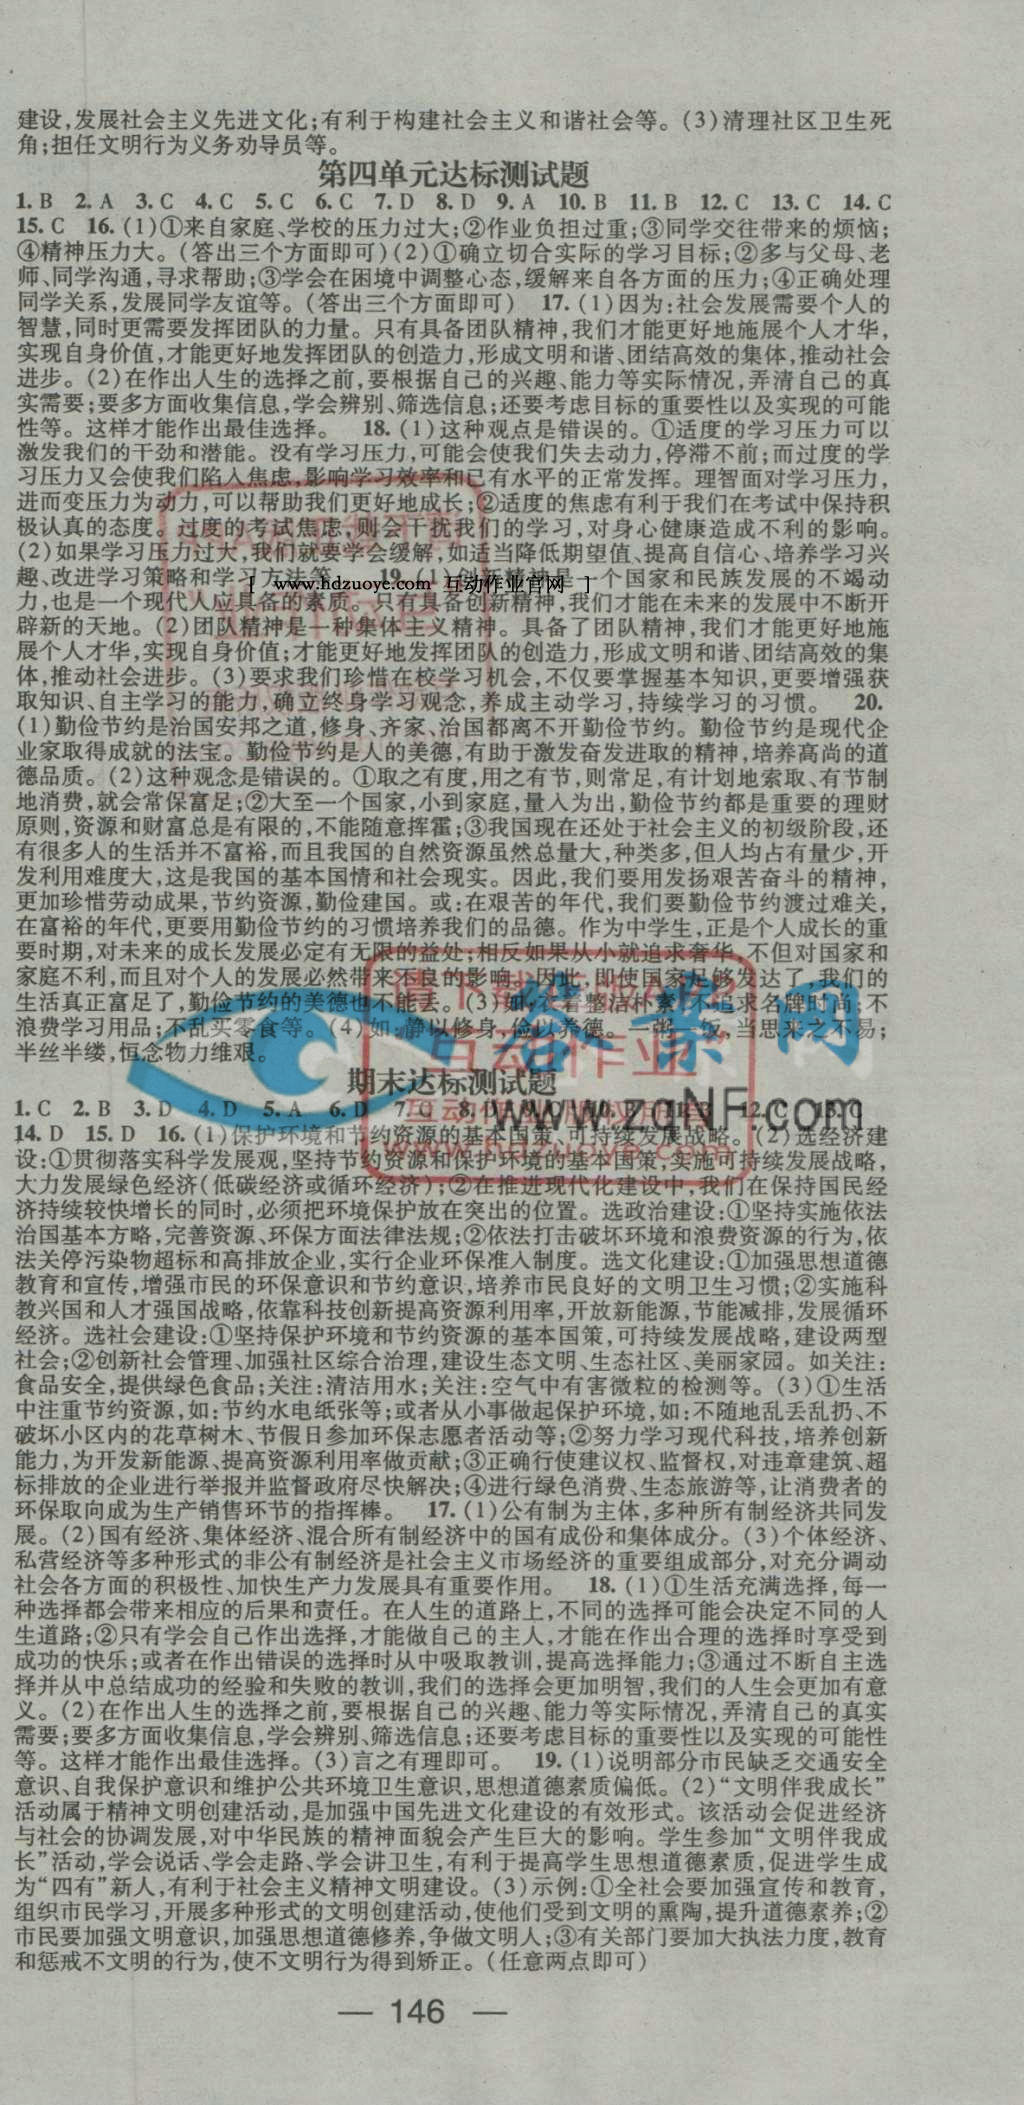 建设,发展社会主义先进文化;有利于构建社会主义和谐社会等。(3)清理社区卫生死
角;担任文明行为义务劝导员等。
第四单元达标测试题
1. B 2. A 3. C 4. C 5. C 6. C 7. D 8. D 9. A 10. B 11. B 12. C 13. C 14. C
15. C 16. (1)①来自家庭、学校的压力过大;②作业负担过重;③同学交往带来的烦恼;
④精神压力大。(答出三个方面即可)(2)①确立切合实际的学习目标;②多与父母、老
师、同学沟通,寻求帮助;③学会在困境中调整心态,缓解来自各方面的压力;④正确处理
同学关系,发展同学友谊等。(答出三个方面即可) 17. (1)因为:社会发展需要个人的
智慧,同时更需要发挥团队的力量。只有具备团队精神,我们才能更好地施展个人才华,
实现自身价值,才能更好地发挥团队的创造力,形成文明和谐、团结高效的集体,推动社会
进步。(2)在作出人生的选择之前,要根据自己的兴趣、能力等实际情况,弄清自己的真
实需要;要多方面收集信息,学会辨别、筛选信息;还要考虑目标的重要性以及实现的可能
性等。这样才能作出最佳选择。 18. (1)这种观点是错误的。①适度的学习压力可以
激发我们的干劲和潜能。没有学习压力,可能会使我们失去动力,停滞不前;而过度的学
习压力又会使我们陷入焦虑,影响学习效率和已有水平的正常发挥。理智面对学习压力,
进而变压力为动力,可以帮助我们更好地成长;②适度的焦虑有利于我们在考试中保持积
极认真的态度。过度的考试焦虑,则会干扰我们的学习,对身心健康造成不利的影响。
(2)如果学习压力过大,我们就要学会缓解,如适当降低期望值、提高自信心、培养学习兴
趣、改进学习策略和学习方法等。 19. (1)创新精神是一个国家和民族发展的不竭动
[ www.hdzuoye.com 互动作业官网 ]
力,也是一个现代人应具备的素质。只有具备创新精神,我们才能在未来的发展中不断开
辟新的天地。(2)团队精神是一种集体主义精神。具备了团队精神,我们才能更好地施
展个人才华,实现自身价值;才能更好地发挥团队的创造力,形成文明和谐、团结高效的集
体,推动社会进步。(3)要求我们珍惜在校学习机会,不仅要掌握基本知识,更要增强获
取知识、自主学习的能力,确立终身学习观念,养成主动学习,持续学习的习惯。 20.
(1)勤俭节约是治国安邦之道,修身、齐家、治国都离不开勤俭节约。勤俭节约是现代企
业家取得成就的法宝。勤俭节约是人的美德,有助于激发奋发进取的精神,培养高尚的道
德品质。(2)这种观念是错误的。①取之有度,用之有节,则常足,有计划地索取、有节制
地消费,就会常保富足;②大至一个国家,小到家庭,量入为出,勤俭节约都是重要的理财
原则,资源和财富总是有限的,不能随意挥霍;③我国现在还处于社会主义的初级阶段,还
有很多人的生活并不富裕,而且我国的自然资源虽然总量大,种类多,但人均占有量少,开
发利用难度大,这是我国的基本国情和社会现实。因此,我们要用发扬艰苦奋斗的精神,
更加珍惜劳动成果,节约资源,勤俭建国。或:在艰苦的年代,我们要勤俭节约渡过难关,
在富裕的年代,更要用勤俭节约的习惯培养我们的品德。作为中学生,正是个人成长的重
要时期,对未来的成长发展必定有无限的益处;相反如果从小就追求奢华,不但对国家和
家庭不利,而且对个人的发展必然带来不良的影响。因此,即使国家足够发达了,我们的
生活真正富足了,勤俭节约的美德也不能丢。(3)如:衣着整洁朴素,不追求名牌时尚;不
浪费学习用品;不乱买零食等。(4)如:静以修身,俭以养德。一粥一饭,当思来之不易;
半丝半缕,恒念物力维艰。
期末达标测试题
1. C 2. B 3. D 4. D 5. A 6. D 7. C 8. D 9. 10. 11. B 12. C 13. C
14. D 15. D 16. (1)保护环境和节约资源的基本国策、可持续发展战略。(2)选经济建
设:①贯彻落实科学发展观,坚持节约资源和保护环境的基本国策,实施可持续发展战略,
大力发展绿色经济(低碳经济或循环经济);②在推进现代化建设中,我们在保持国民经
济持续较快增长的同时,必须把环境保护放在突出的位置。选政治建设:①坚持实施依法
治国基本方略,完善资源、环保方面法律法规;②依法打击破坏环境和浪费资源的行为,依
法关停污染物超标和高排放企业,实行企业环保准入制度。选文化建设:①加强思想道德
教育和宣传,增强市民的环保意识和节约意识,培养市民良好的文明卫生习惯;②实施科
教兴国和人才强国战略,依靠科技创新提高资源利用率,开放新能源,节能减排,发展循环
经济。选社会建设:①坚持保护环境和节约资源的基本国策,可持续发展战略,建设两型
社会;②创新社会管理、加强社区综合治理,建设生态文明、生态社区、美丽家园。如关注:
食品安全,提供绿色食品;关注:清洁用水;关注:空气中有害微粒的检测等。(3)①生活
中注重节约资源,如:节约水电纸张等;或者从小事做起保护环境,如:不随地乱丢乱扔、不
破坏小区内的花草树木、节假日参加环保志愿者活动等;②努力学习现代科技,培养创新
能力,为开发新能源、提高资源利用率做贡献;③正确行使建议权、监督权,对违章建筑、超
标排放的企业进行举报并监督政府尽快解决;④进行绿色消费、生态旅游等,让消费者的
环保取向成为生产销售环节的指挥棒。 17. (1)公有制为主体,多种所有制经济共同发
展。(2)国有经济、集体经济、混合所有制经济中的国有成份和集体成分。(3)个体经济、
私营经济等多种形式的非公有制经济是社会主义市场经济的重要组成部分,对充分调动
社会各方面的积极性、加快生产力发展具有重要作用。 18. (1)①生活充满选择,每一
种选择都会带来相应的后果和责任。在人生的道路上,不同的选择可能会决定不同的人
生道路;②只有学会自己作出选择,才能做自己的主人,才能在作出合理的选择时享受到
成功的快乐;或者在作出错误的选择时从中吸取教训,提高选择能力;③通过不断自主选
择并从中总结成功的经验和失败的教训,我们的选择会更加明智,我们的人生会更加有意
义。(2)在作出人生的选择之前,要根据自己的兴趣、能力等实际情况,弄清自己的真实
需要;要多方面收集信息,学会辨别、筛选信息;还要考虑目标的重要性以及实现的可能性
等。这样才能作出最佳选择。(3)言之有理即可。 19. (1)说明部分市民缺乏交通安全
意识、自我保护意识和维护公共环境卫生意识,思想道德素质偏低。(2)“文明伴我成长”
活动属于精神文明创建活动,是加强中国先进文化建设的有效形式。该活动会促进经济
与社会的协调发展,对中华民族的精神面貌会产生巨大的影响。学生参加“文明伴我成
长”活动,学会说话、学会走路、学会讲卫生,有利于提高学生思想道德素质,促进学生成
为“四有”新人,有利于社会主义精神文明建设。(3)示例:①全社会要加强宣传和教育,
组织市民学习,开展多种形式的文明创建活动,使他们受到文明的熏陶,提升道德素养;②
市民要加强文明意识,加强思想道德修养,争做文明人;③有关部门要加大执法力度,教育
和惩戒不文明的行为,使不文明行为得到矫正。(任意两点即可)
— 146 —
答案网
www.zqNF.com
互动作业
www.hdzuoye.com